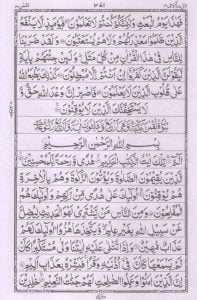 فَهٰذَا يَوْمُ الْبَعْثِ وَلٰكِنَّكُمْ كُنْتُمْ لَا تَعْلَمُوْنَ فَيَوْمَئِذٍ لَّا يَنْفَعُ
الَّذِيْنَ ظَلَمُوْا مَعْذِرَتُهُمْ وَلَا هُمْ يُسْتَعْتَبُوْنَ وَلَقَدْ ضَرَبْنَا
لِلنَّاسِ فِيْ هٰذَا الْقُرْاٰنِ مِنْ كُلِّ مَثَلٍ وَلَئِنْ جِئْتَهُمْ بِاٰيَةٍ
لَّيَقُوْلَنَّ الَّذِيْنَ كَفَرُوْٓا اِنْ اَنْتُمْ اِلَّا مُبْطِلُوْنَ كَذٰلِكَ يَطْبَعُ اللّٰهُ
عَلٰى قُلُوْبِ الَّذِيْنَ لَا يَعْلَمُوْنَ فَاصْبِرْ اِنَّ وَعْدَ اللّٰهِ حَقٌّ وَّ
لَا يَسْتَخِفَّنَّكَ الَّذِيْنَ لَا يُوْقِنُوْنَ
بِسْمِ اللّٰهِ الرَّحْمٰنِ الرَّحِيْمِ
الٓمّٓ تِلْكَ اٰيٰتُ الْكِتٰبِ الْحَكِيْمِ هُدًى وَّرَحْمَةً لِّلْمُحْسِنِيْنَ
الَّذِيْنَ يُقِيْمُوْنَ الصَّلٰوةَ وَيُؤْتُوْنَ الزَّكٰوةَ وَهُمْ بِالْاٰخِرَةِ
هُمْ يُوْقِنُوْنَ اُولٰٓئِكَ عَلٰى هُدًى مِّنْ رَّبِّهِمْ وَاُولٰٓئِكَ هُمُ
الْمُفْلِحُوْنَ وَمِنَ النَّاسِ مَنْ يَّشْتَرِيْ لَهْوَ الْحَدِيْثِ لِيُضِلَّ
عَنْ سَبِيْلِ اللّٰهِ بِغَيْرِ عِلْمٍ وَّيَتَّخِذَهَا هُزُوًا اُولٰٓئِكَ لَهُمْ
عَذَابٌ مُّهِيْنٌ وَاِذَا تُتْلٰى عَلَيْهِ اٰيٰتُنَا وَلّٰى مُسْتَكْبِرًا كَاَنْ
لَّمْ يَسْمَعْهَا كَاَنَّ فِيْٓ اُذُنَيْهِ وَقْرًا فَبَشِّرْهُ بِعَذَابٍ اَلِيْمٍ
اِنَّ الَّذِيْنَ اٰمَنُوْا وَعَمِلُوا الصّٰلِحٰتِ لَهُمْ جَنّٰتُ النَّعِيْمِ خٰلِدِيْنَ